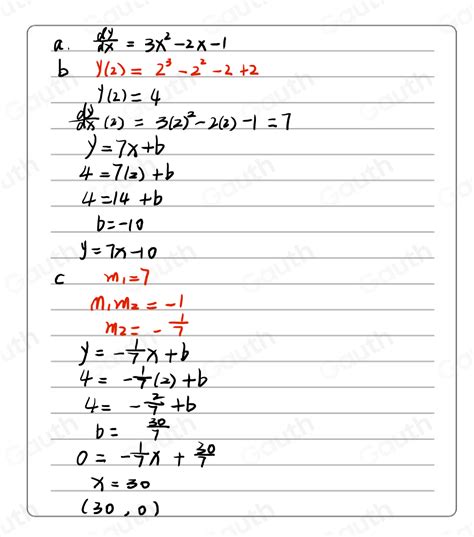 a. dy/dx = 3x² - 2x - 1
b y(2) = 2³ - 2² - 2 + 2
y(2) = 4
dy/dx (2) = 3(2)² - 2(2) - 1 = 7
y = 7x + b
4 = 7(2) + b
4 = 14 + b
b = -10
y = 7x - 10
c m₁ = 7
m₁m₂ = -1
m₂ = -1/7
y = -1/7 x + b
4 = -1/7 (2) + b
4 = -2/7 + b
b = 30/7
0 = -1/7 x + 30/7
x = 30
(30, 0)
Gauth